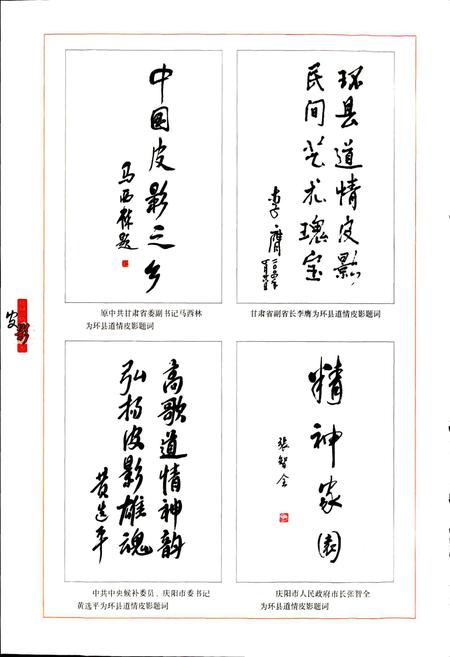 中国皮影之乡
马西林题
原中共甘肃省委副书记马西林
为环县道情皮影题词
环县道情皮影
民间艺术瑰宝
李膺
甘肃省副省长李膺为环县道情皮影题词
皮影
高歌道情神韵
弘扬皮影雄魂
黄选平
中共中央候补委员、庆阳市委书记
黄选平为环县道情皮影题词
精神家园
张智全
庆阳市人民政府市长张智全
为环县道情皮影题词